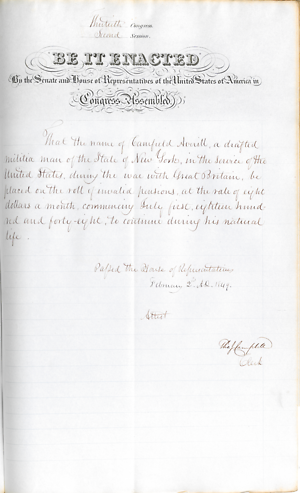 Thirtieth Congress
Second Session.
BE IT ENACTED
By the Senate and House of Representatives of the United States of America in
Congress Assembled
That the name of Camfield Averill, a drafted
militia man of the State of New York, in the service of the
United States, during the war with Great Britain, be
placed on the roll of invalid pensions, at the rate of eight
dollars a month, commencing July first, eighteen hund
red and forty-eight, to continue during his natural
life.
Passed the House of Representatives
February 2d, AD. 1849.
Attest
Tho. J. Campbell
Clerk